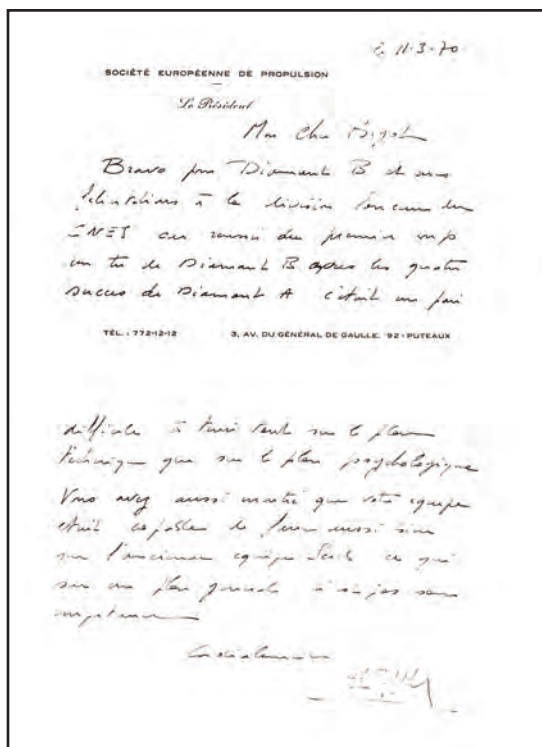 11-3-70
SOCIÉTÉ EUROPÉENNE DE PROPULSION
Le Président
Mon Cher
Bravo pour Diamant B et mes
félicitations à la division lanceurs du
CNES car réussir du premier coup
un tir de Diamant B après les quatre
succès de Diamant A c'était un pari
TÉL. : 772-12-12 3, AV. DU GÉNÉRAL DE GAULLE. 92 - PUTEAUX
difficile à tenir tant sur le plan
technique que sur le plan psychologique
Vous avez aussi montré que votre équipe
était capable de faire aussi bien
que l'ancienne équipe ce qui
sur un plan n'est pas sans
importance
Cordialement